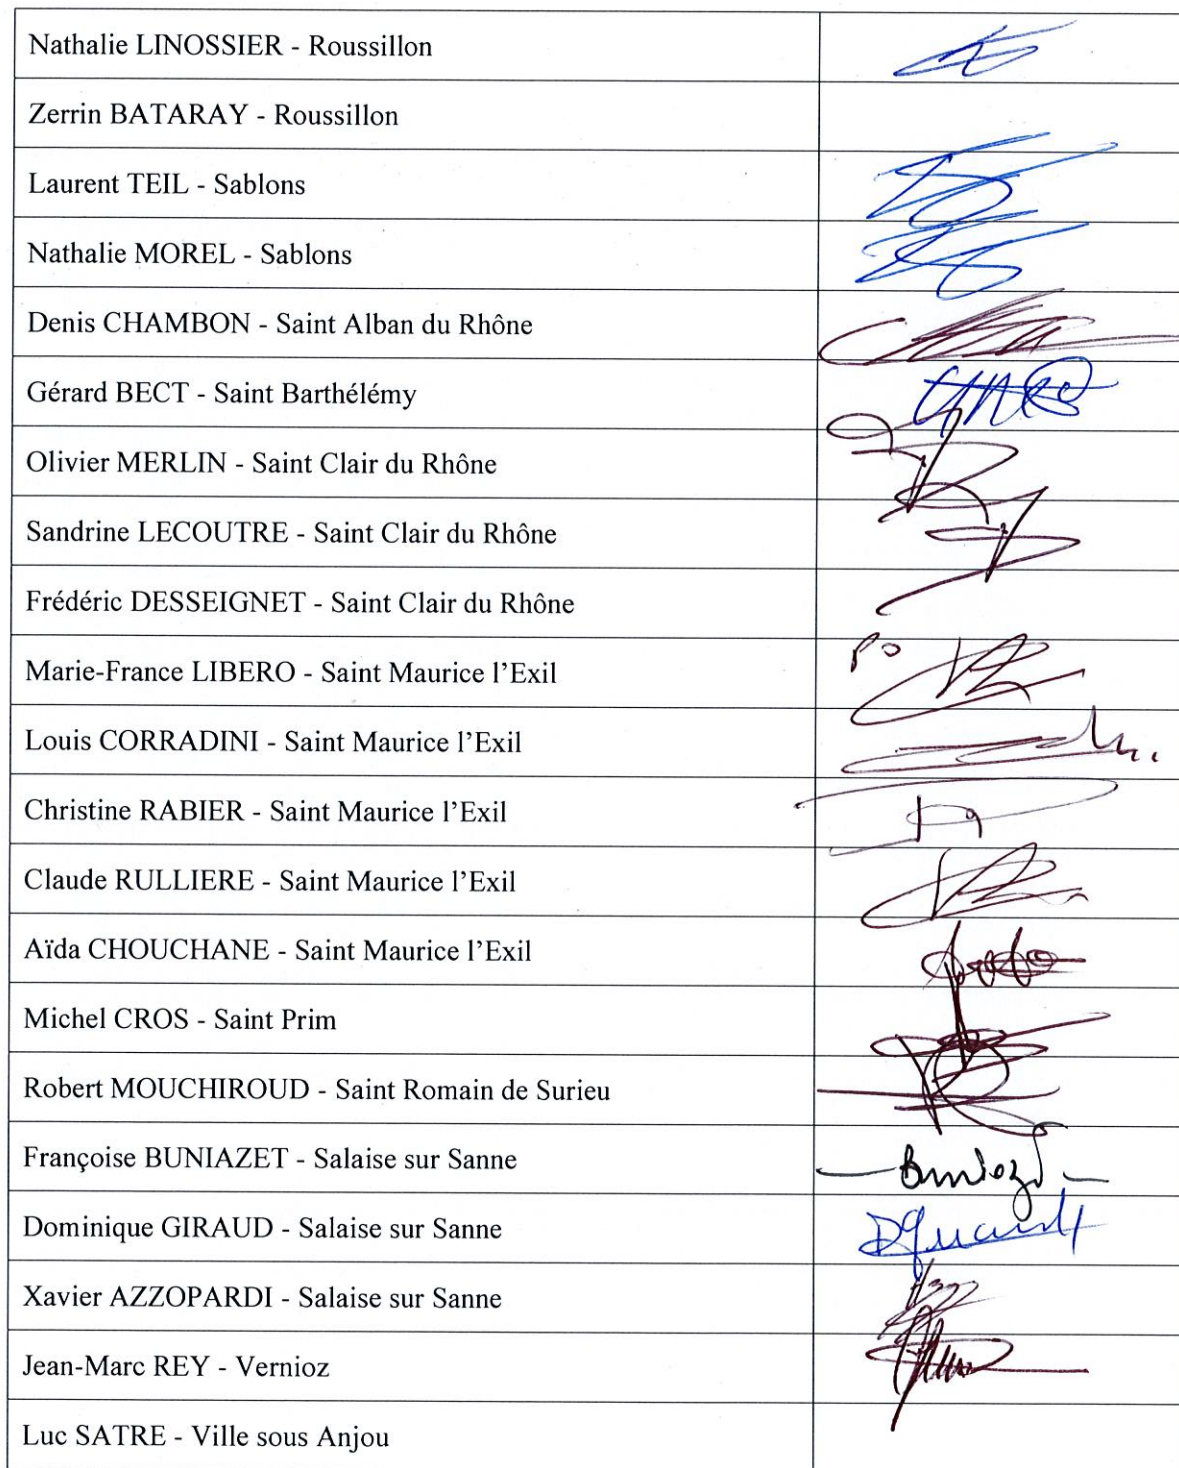 Nathalie LINOSSIER - Roussillon
Zerrin BATARAY - Roussillon
Laurent TEIL - Sablons
Nathalie MOREL - Sablons
Denis CHAMBON - Saint Alban du Rhône
Gérard BECT - Saint Barthélémy
Olivier MERLIN - Saint Clair du Rhône
Sandrine LECOUTRE - Saint Clair du Rhône
Frédéric DESSEIGNET - Saint Clair du Rhône
Marie-France LIBERO - Saint Maurice l’Exil
PO
Louis CORRADINI - Saint Maurice l’Exil
Christine RABIER - Saint Maurice l’Exil
Claude RULLIERE - Saint Maurice l’Exil
Aïda CHOUCHANE - Saint Maurice l’Exil
Michel CROS - Saint Prim
Robert MOUCHIROUD - Saint Romain de Surieu
Françoise BUNIAZET - Salaise sur Sanne
Dominique GIRAUD - Salaise sur Sanne
Xavier AZZOPARDI - Salaise sur Sanne
Jean-Marc REY - Vernioz
Luc SATRE - Ville sous Anjou